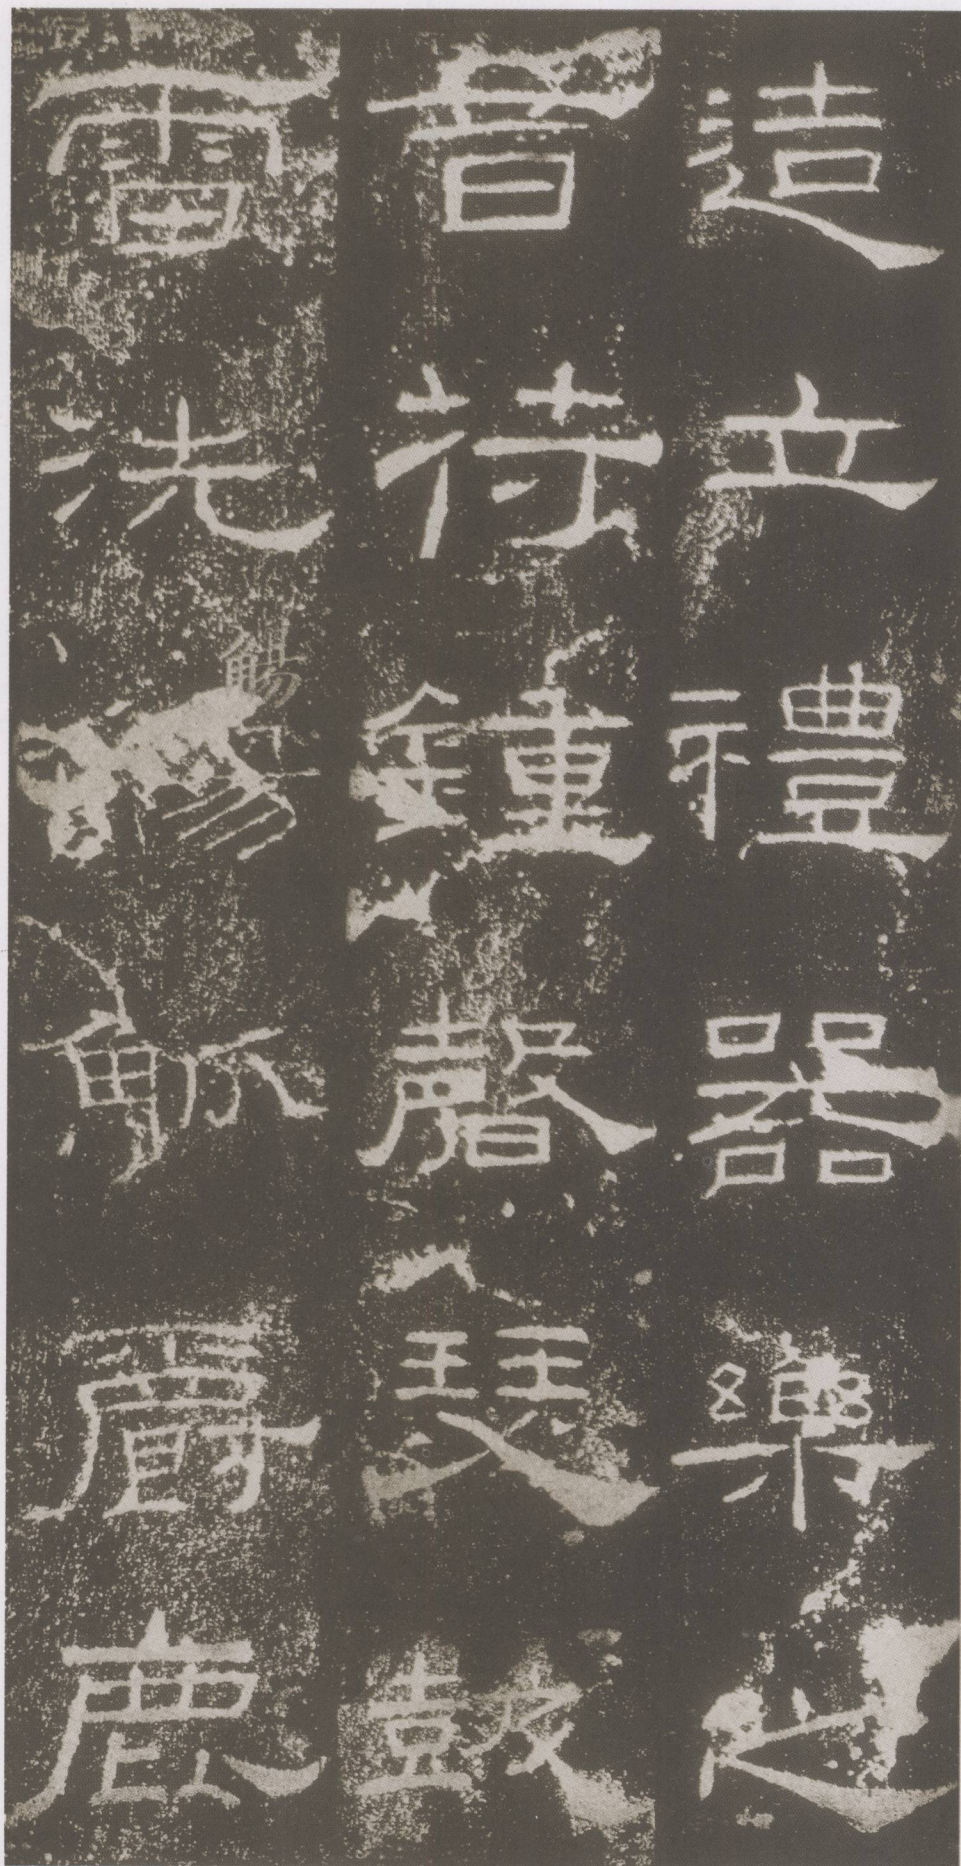 造立禮器樂之
音符鍾磬瑟鼓
雷洗觴觚爵鹿
觴